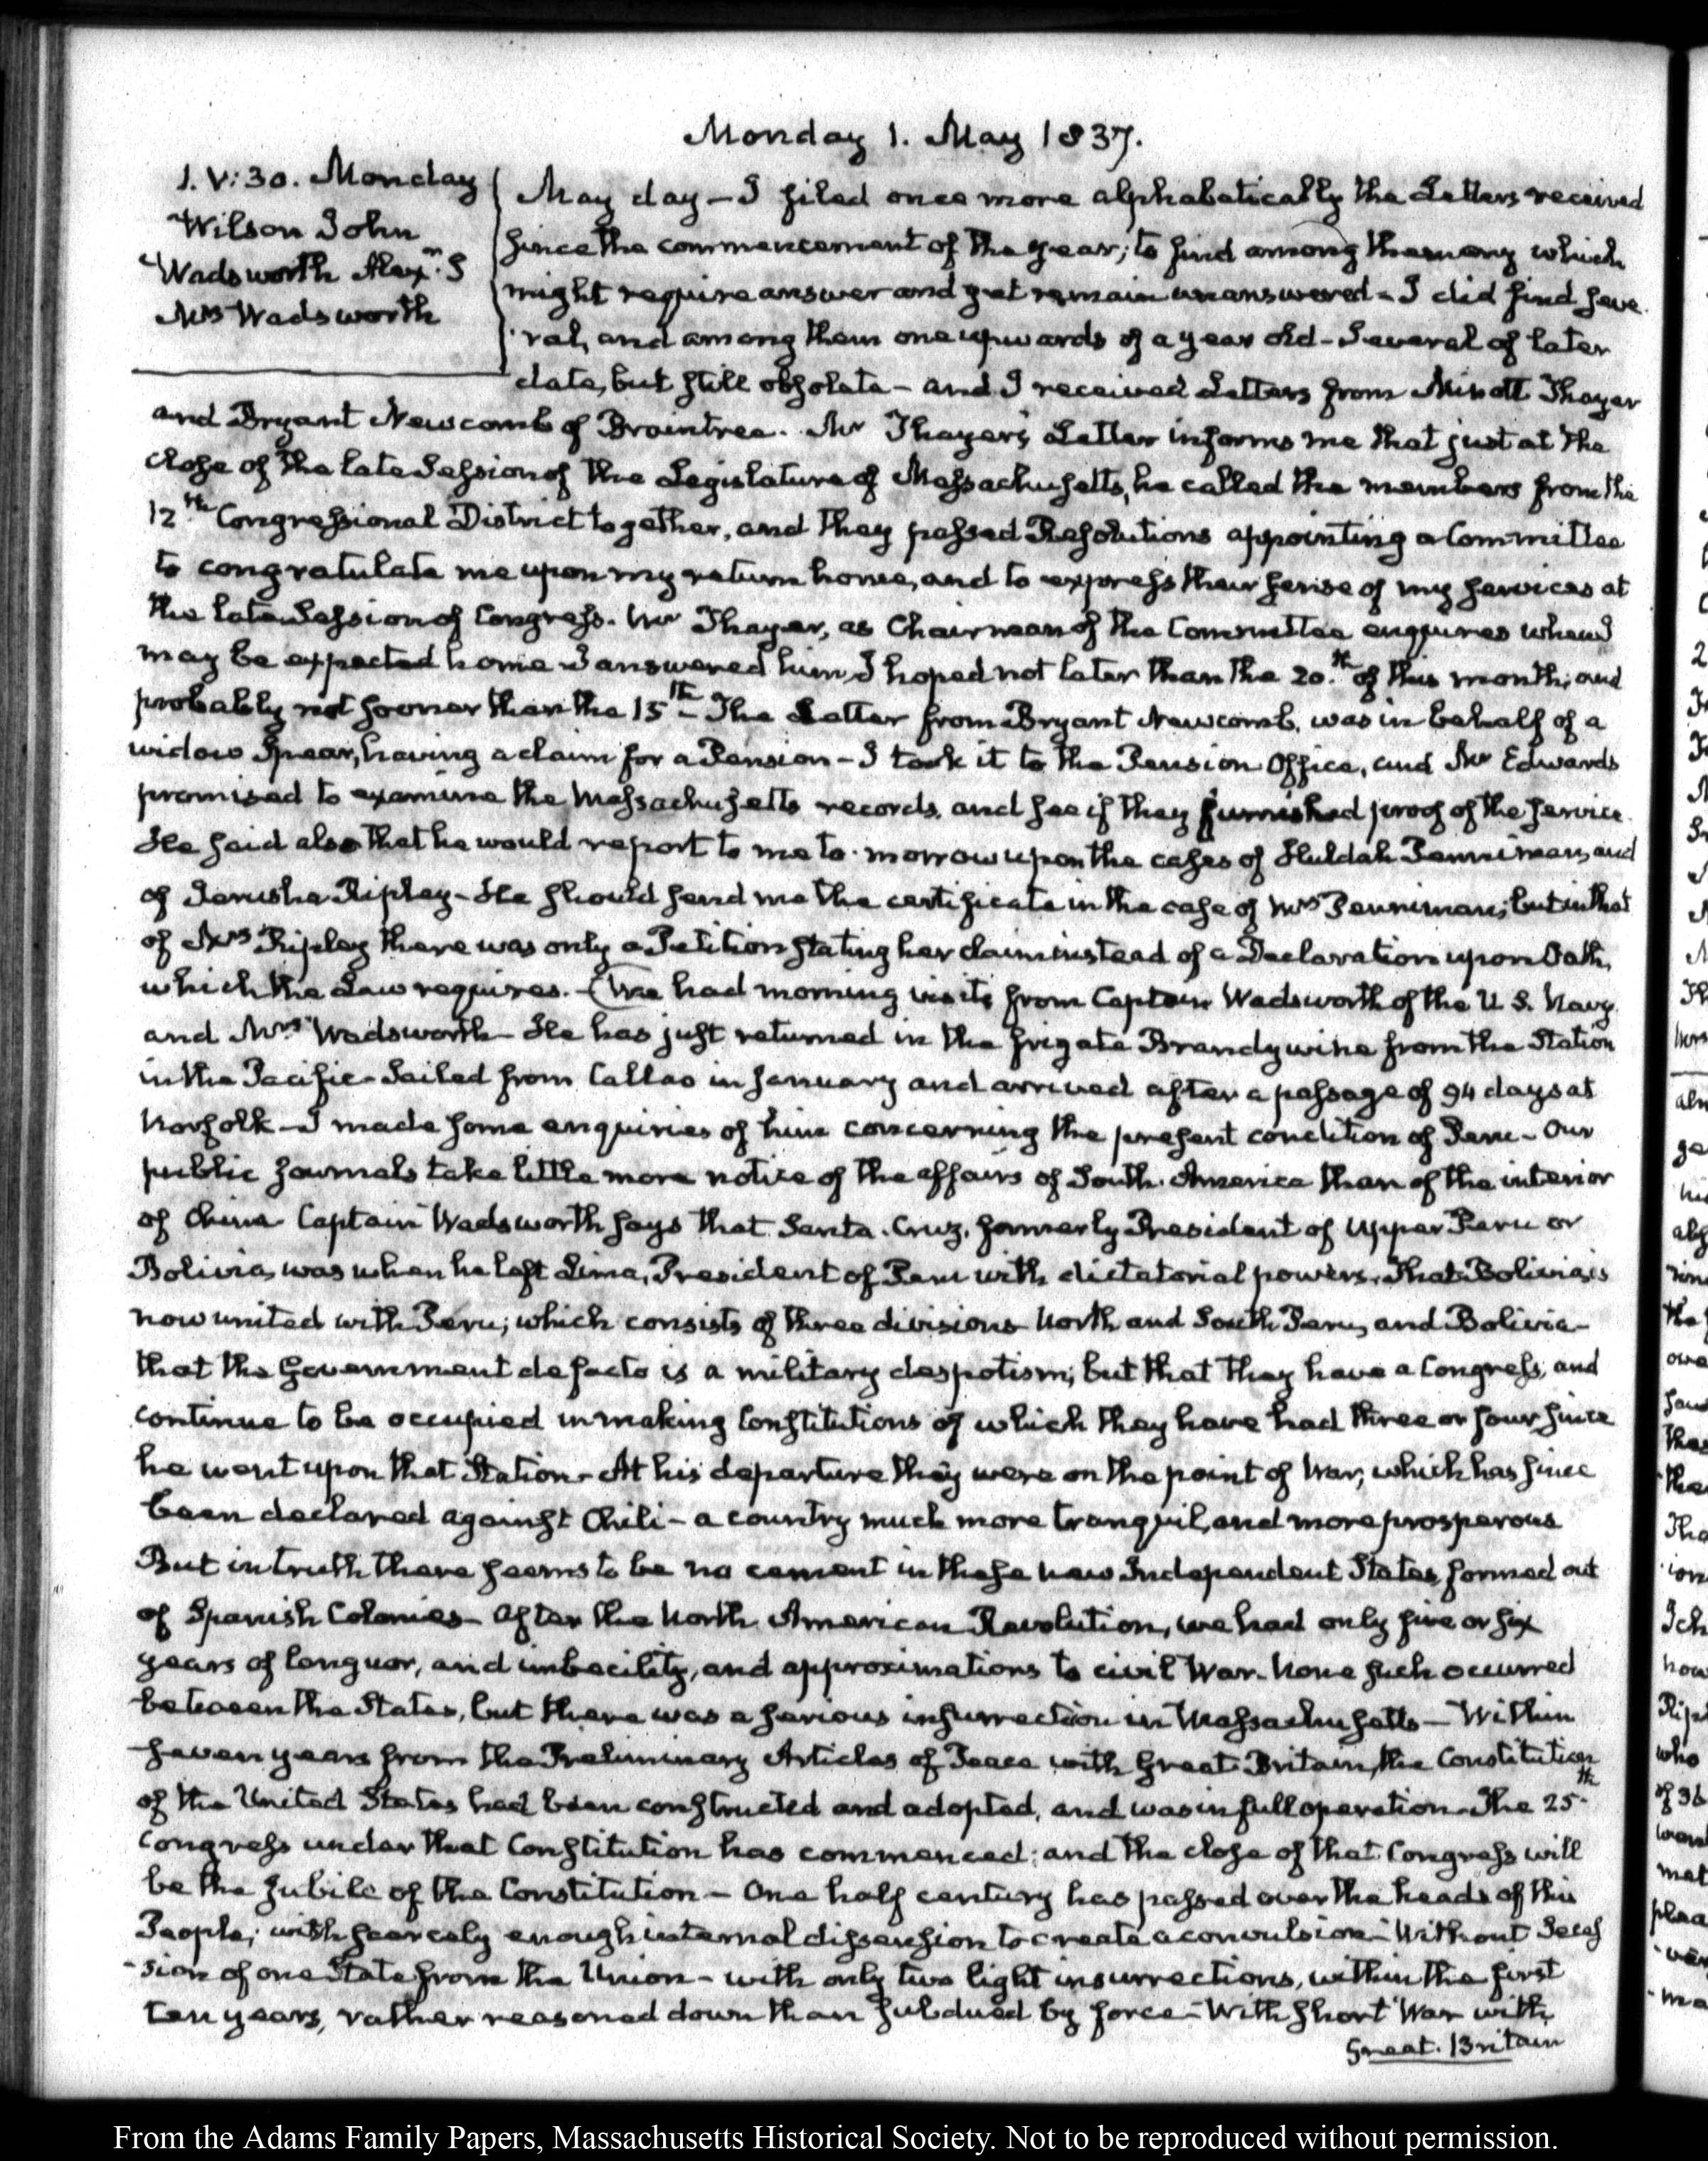 Monday 1. May 1837.
1. V:30. Monday
Wilson John
Wadsworth Alexr. S
Mrs Wadsworth
May day — I filed once more alphabetically the Letters received
since the commencement of the year; to find among them any which
might require answer and yet remain unanswered - I did find seve
ral, and among them one upwards of a year old - Several of later
date, but still obsolete - and I received Letters from Minott Thayer
and Bryant Newcomb of Braintree. Mr Thayer's Letter informs me that just at the
close of the late Session of the Legislature of Massachusetts, he called the members from the
12th Congressional District together, and they passed Resolutions appointing a Committee
to congratulate me upon my return home, and to express their sense of my services at
the late Session of Congress. Mr Thayer, as Chairman of the Committee enquires when I
may be expected home I answered him I hoped not later than the 20th of this month; and
probably not sooner than the 15th - The Letter from Bryant Newcomb, was in behalf of a
widow Spear, having a claim for a Pension - I took it to the Pension Office, and Mr Edwards
promised to examine the Massachusetts records, and see if they furnished proof of the service
He said also that he would report to me to-morrow upon the cases of Huldah Penniman, and
of Jerusha Ripley - He should send me the certificate in the case of Mrs Penniman; but in that
of Mrs Ripley there was only a Petition stating her claim instead of a Declaration upon Oath,
which the Law requires. - We had morning visits from Captain Wadsworth of the U. S. Navy
and Mrs Wadsworth - He has just returned in the frigate Brandywine from the Station
in the Pacific - Sailed from Callao in January and arrived after a passage of 94 days at
Norfolk - I made some enquiries of him concerning the present condition of Peru - Our
public Journals take little more notice of the affairs of South America than of the interior
of China - Captain Wadsworth says that Santa-Cruz, formerly President of Upper Peru or
Bolivia, was when he left Lima, President of Peru with dictatorial powers. That Bolivia is
now united with Peru; which consists of three divisions North and South Peru, and Bolivia -
that the Government de facto is a military despotism; but that they have a Congress, and
continue to be occupied in making Constitutions of which they have had three or four since
he went upon that Station - At his departure they were on the point of War, which has since
been declared against Chili - a country much more tranquil, and more prosperous
But in truth there seems to be no cement in these new Independent States, formed out
of Spanish Colonies - After the North American Revolution, we had only five or six
years of languor, and imbecility, and approximations to civil War. None such occurred
between the States, but there was a serious insurrection in Massachusetts — Within
seven years from the Preliminary Articles of Peace with Great Britain, the Constitution
of the United States had been constructed and adopted, and was in full operation - The 25th
Congress under that Constitution has commenced; and the close of that Congress will
be the Jubile of the Constitution - One half century has passed over the heads of this
People; with scarcely enough internal dissension to create a convulsion - Without Seces
-sion of one State from the Union - with only two light insurrections, within the first
ten years, rather reasoned down than subdued by force - With short War with
Great-Britain
From the Adams Family Papers, Massachusetts Historical Society. Not to be reproduced without permission.